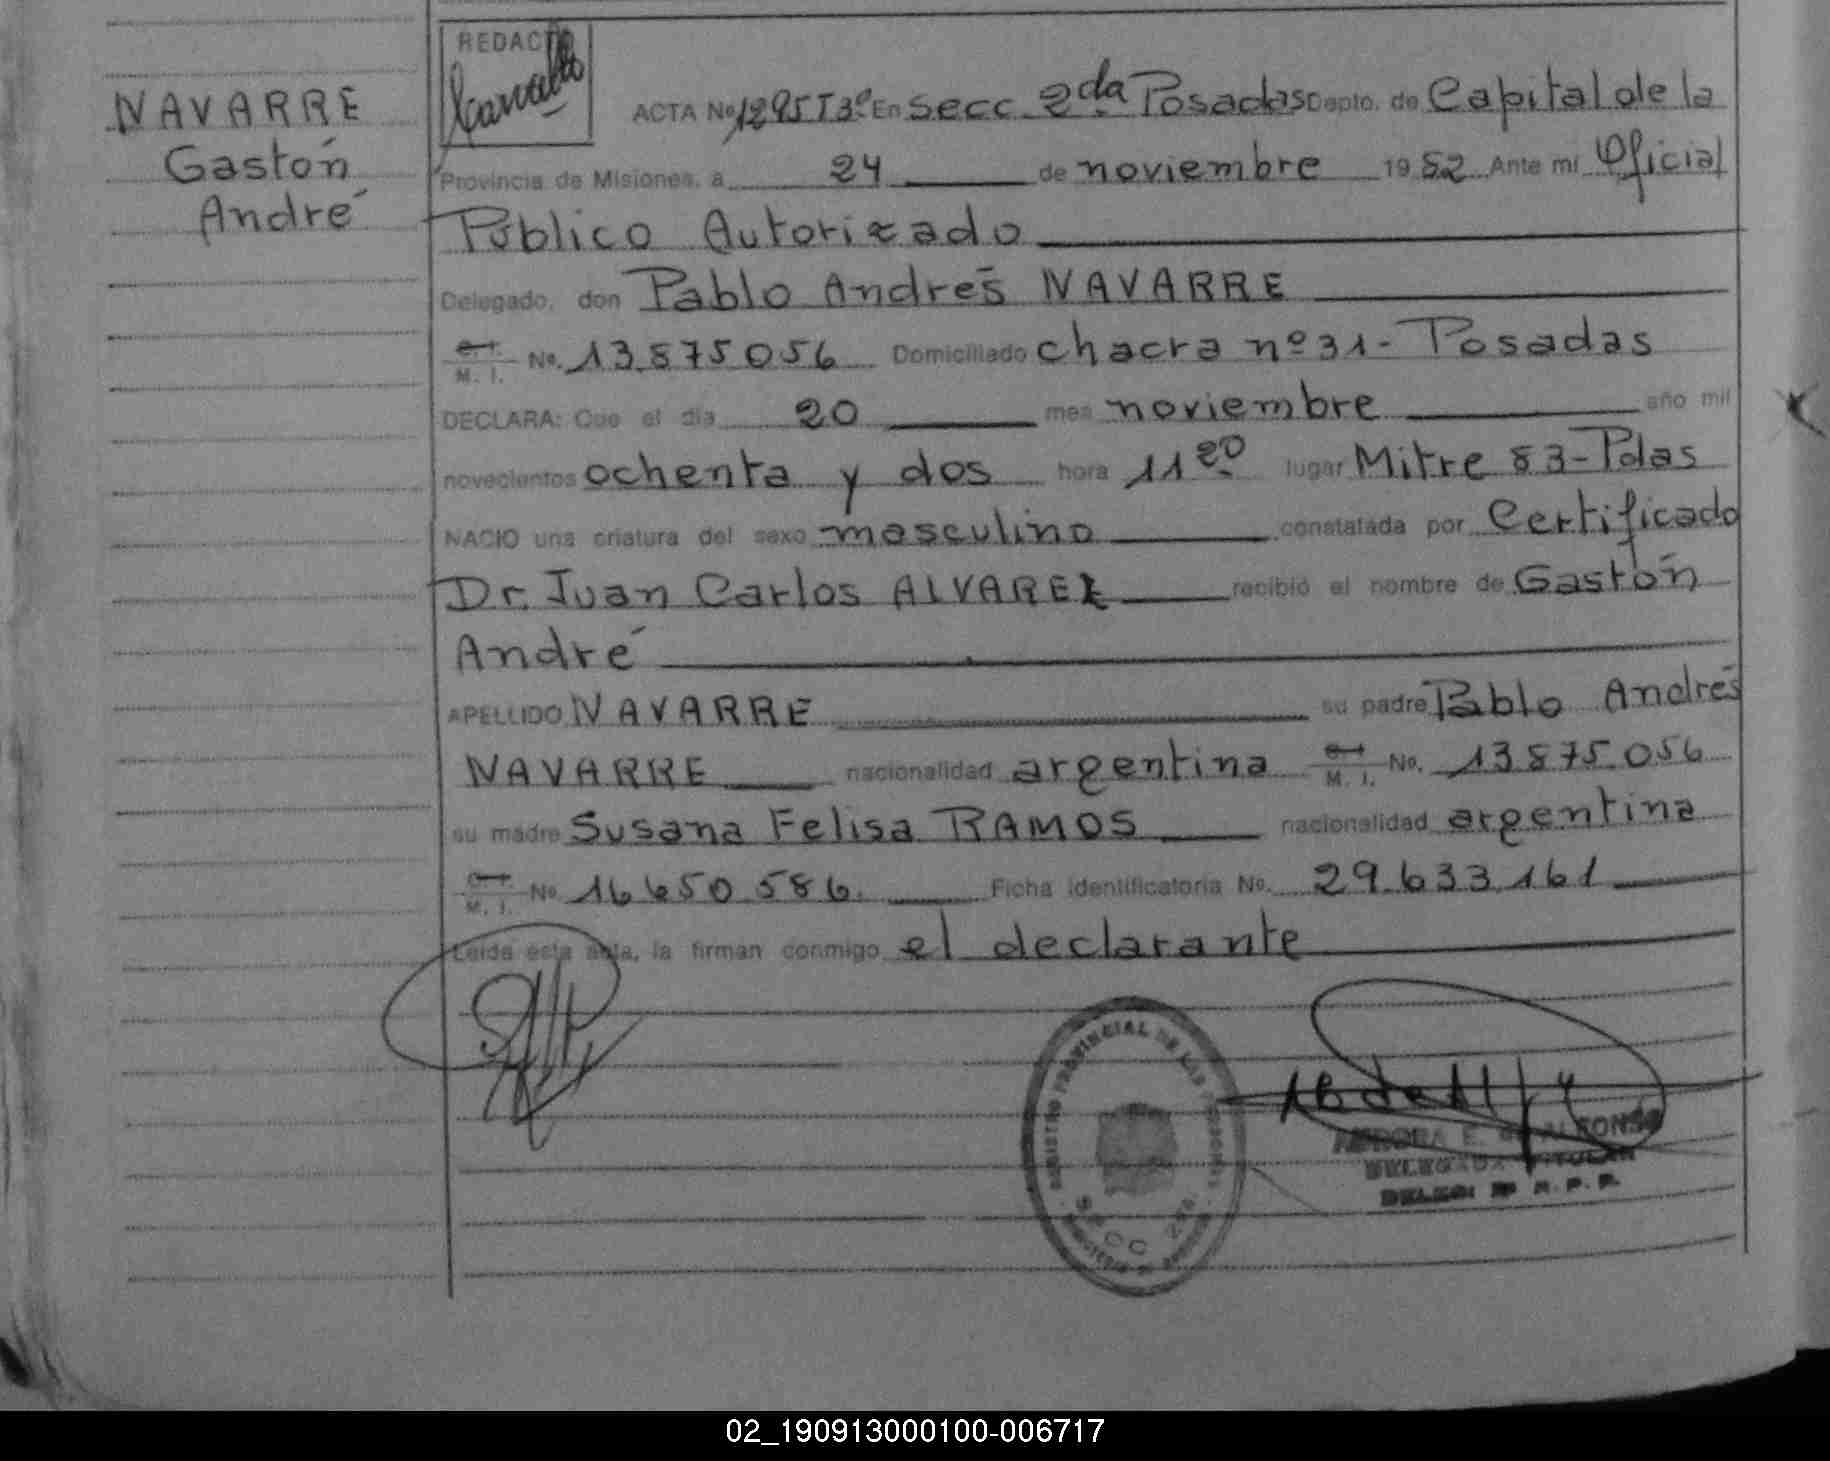 NAVARRE
Gastón
André
REDACTO
ACTA Nº 1295 T3º En Secc. 2da Posadas Depto. de Capital de la
Provincia de Misiones, a 24 de noviembre 1982 Ante mí Oficial
Público Autorizado
Delegado, don Pablo Andrés NAVARRE
C. I.
M. I. No. 13.875.056 Domiciliado chacra nº 31- Posadas
DECLARA: Que el día 20 mes noviembre año mil
novecientos ochenta y dos hora 11 20 lugar Mitre 83-Pdas
NACIO una criatura del sexo masculino constatada por Certificado
Dr. Juan Carlos ALVAREZ recibió el nombre de Gastón
André
APELLIDO NAVARRE su padre Pablo Andrés
NAVARRE nacionalidad argentina C. I. M. I. No. 13.875.056
su madre Susana Felisa RAMOS nacionalidad argentina
C. I. M. I. No. 16.650.586. Ficha identificatoria No. 29.633.161
Leída esta acta, la firman conmigo el declarante
REGISTRO PROVINCIAL DE LAS PERSONAS
SECC 2da.
AURORA E. ALFONSO
DELEGADA TITULAR
R. P. P.
02_190913000100-006717